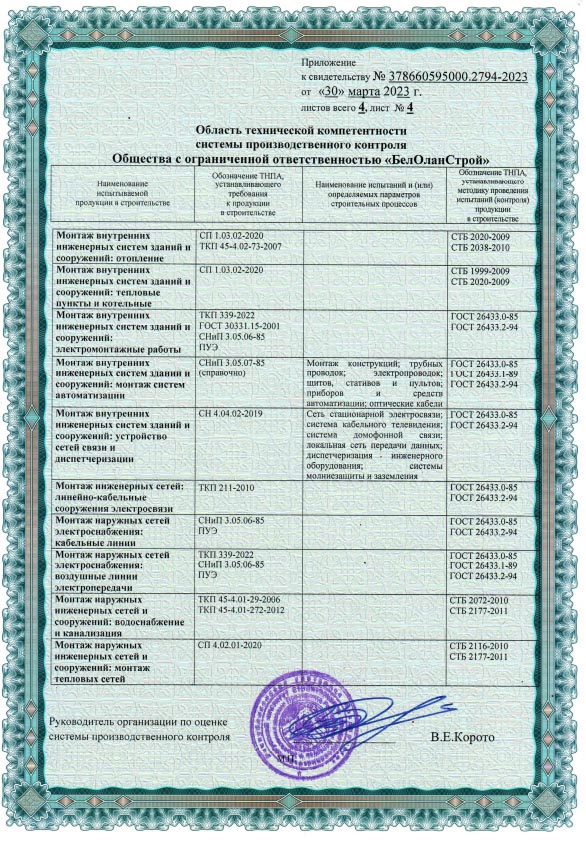 Приложение
к свидетельству № 378660595000.2794-2023
от «30» марта 2023 г.
листов всего 4, лист № 4
Область технической компетентности
системы производственного контроля
Общества с ограниченной ответственностью «БелОланСтрой»
Наименование
испытываемой
продукции в строительстве
Обозначение ТНПА,
устанавливающего
требования
к продукции
в строительстве
Наименование испытаний и (или)
определяемых параметров
строительных процессов
Обозначение ТНПА,
устанавливающего
методику проведения
испытаний (контроля)
продукции
в строительстве
Монтаж внутренних
инженерных систем зданий и
сооружений: отопление
СП 1.03.02-2020
ТКП 45-4.02-73-2007
СТБ 2020-2009
СТБ 2038-2010
Монтаж внутренних
инженерных систем зданий и
сооружений: тепловые
пункты и котельные
СП 1.03.02-2020
СТБ 1999-2009
СТБ 2020-2009
Монтаж внутренних
инженерных систем зданий и
сооружений:
электромонтажные работы
ТКП 339-2022
ГОСТ 30331.15-2001
СНиП 3.05.06-85
ПУЭ
ГОСТ 26433.0-85
ГОСТ 26433.2-94
Монтаж внутренних
инженерных систем зданий и
сооружений: монтаж систем
автоматизации
СНиП 3.05.07-85
(справочно)
Монтаж конструкций; трубных
проводок; электропроводок;
щитов, стативов и пультов;
приборов и средств
автоматизации; оптические кабели
ГОСТ 26433.0-85
ГОСТ 26433.1-89
ГОСТ 26433.2-94
Монтаж внутренних
инженерных систем зданий и
сооружений: устройство
сетей связи и
диспетчеризации
СН 4.04.02-2019
Сеть стационарной электросвязи;
система кабельного телевидения;
система домофонной связи;
локальная сеть передачи данных;
диспетчеризация - инженерного
оборудования; системы
молниезащиты и заземления
ГОСТ 26433.0-85
ГОСТ 26433.2-94
Монтаж инженерных сетей:
линейно-кабельные
сооружения электросвязи
ТКП 211-2010
ГОСТ 26433.0-85
ГОСТ 26433.2-94
Монтаж наружных сетей
электроснабжения:
кабельные линии
СНиП 3.05.06-85
ПУЭ
ГОСТ 26433.0-85
ГОСТ 26433.2-94
Монтаж наружных сетей
электроснабжения:
воздушные линии
электропередачи
ТКП 339-2022
СНиП 3.05.06-85
ПУЭ
ГОСТ 26433.0-85
ГОСТ 26433.1-89
ГОСТ 26433.2-94
Монтаж наружных
инженерных сетей и
сооружений: водоснабжение
и канализация
ТКП 45-4.01-29-2006
ТКП 45-4.01-272-2012
СТБ 2072-2010
СТБ 2177-2011
Монтаж наружных
инженерных сетей и
сооружений: монтаж
тепловых сетей
СП 4.02.01-2020
СТБ 2116-2010
СТБ 2177-2011
Руководитель организации по оценке
системы производственного контроля
В.Е.Корото
М.П.